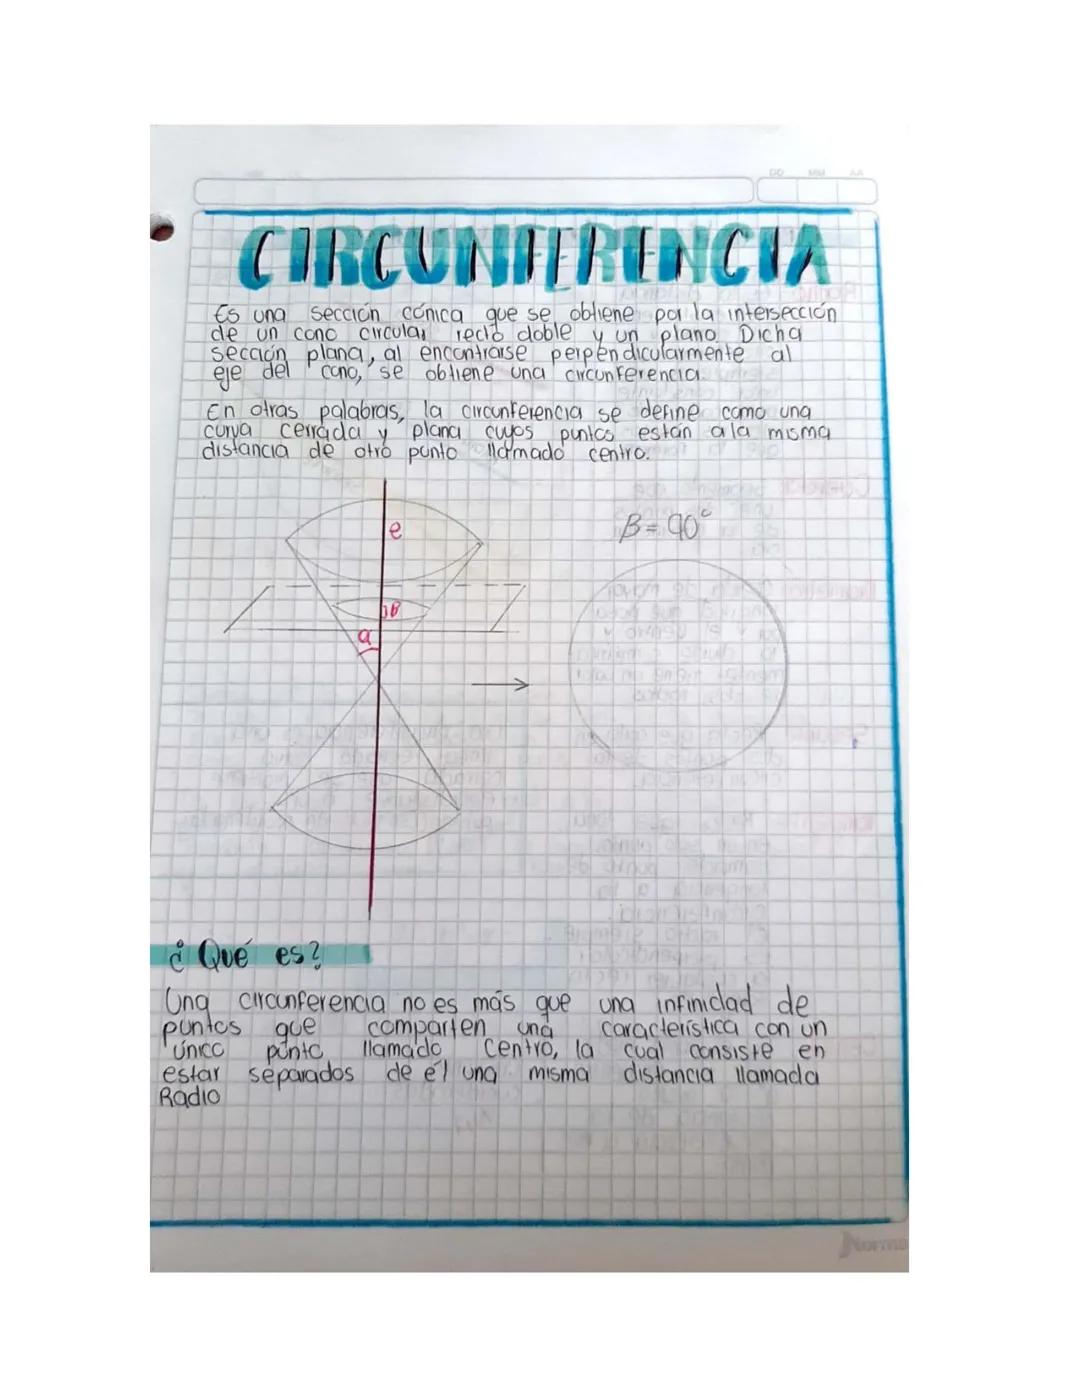 DD MM AA
CIRCUNFERENCIA
Es una sección cónica que se obtiene por la intersección
de un cono circular recto doble y un plano. Dicha
sección plana, al encontrarse perpendicularmente al
eje del cono, se obtiene una circunferencia.
En otras palabras, la circunferencia se define como una
curva cerrada y plana cuyos puntos están a la misma
distancia de otro punto llamado centro.
e
β = 90°
β
a
¿Qué es?
Una circunferencia no es más que una infinidad de
puntos que comparten una característica con un
único punto llamado Centro, la cual consiste en
estar separados de él una misma distancia llamada
Radio
Norma